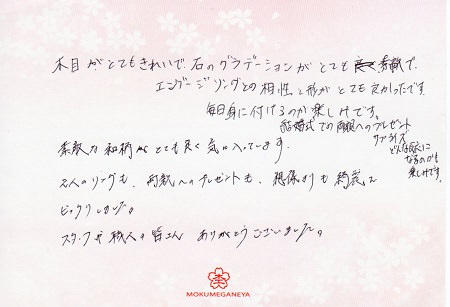 木目がとてもきれいで石のグラデーションがとても素敵で、
エンゲージリングとの相性と形がとても良かったです。
毎日身に付けるのが楽しみです。
結婚式での両親へのプレゼント
サプライズ
どんな反応に
なるのかも
楽しみです。
素敵な和柄がとても良く気に入っています。
二人のリングも、両親へのプレゼントも、想像よりも綺麗で
ビックリしました。
スタッフや職人の皆さん ありがとうございました。
MOKUMEGANEYA